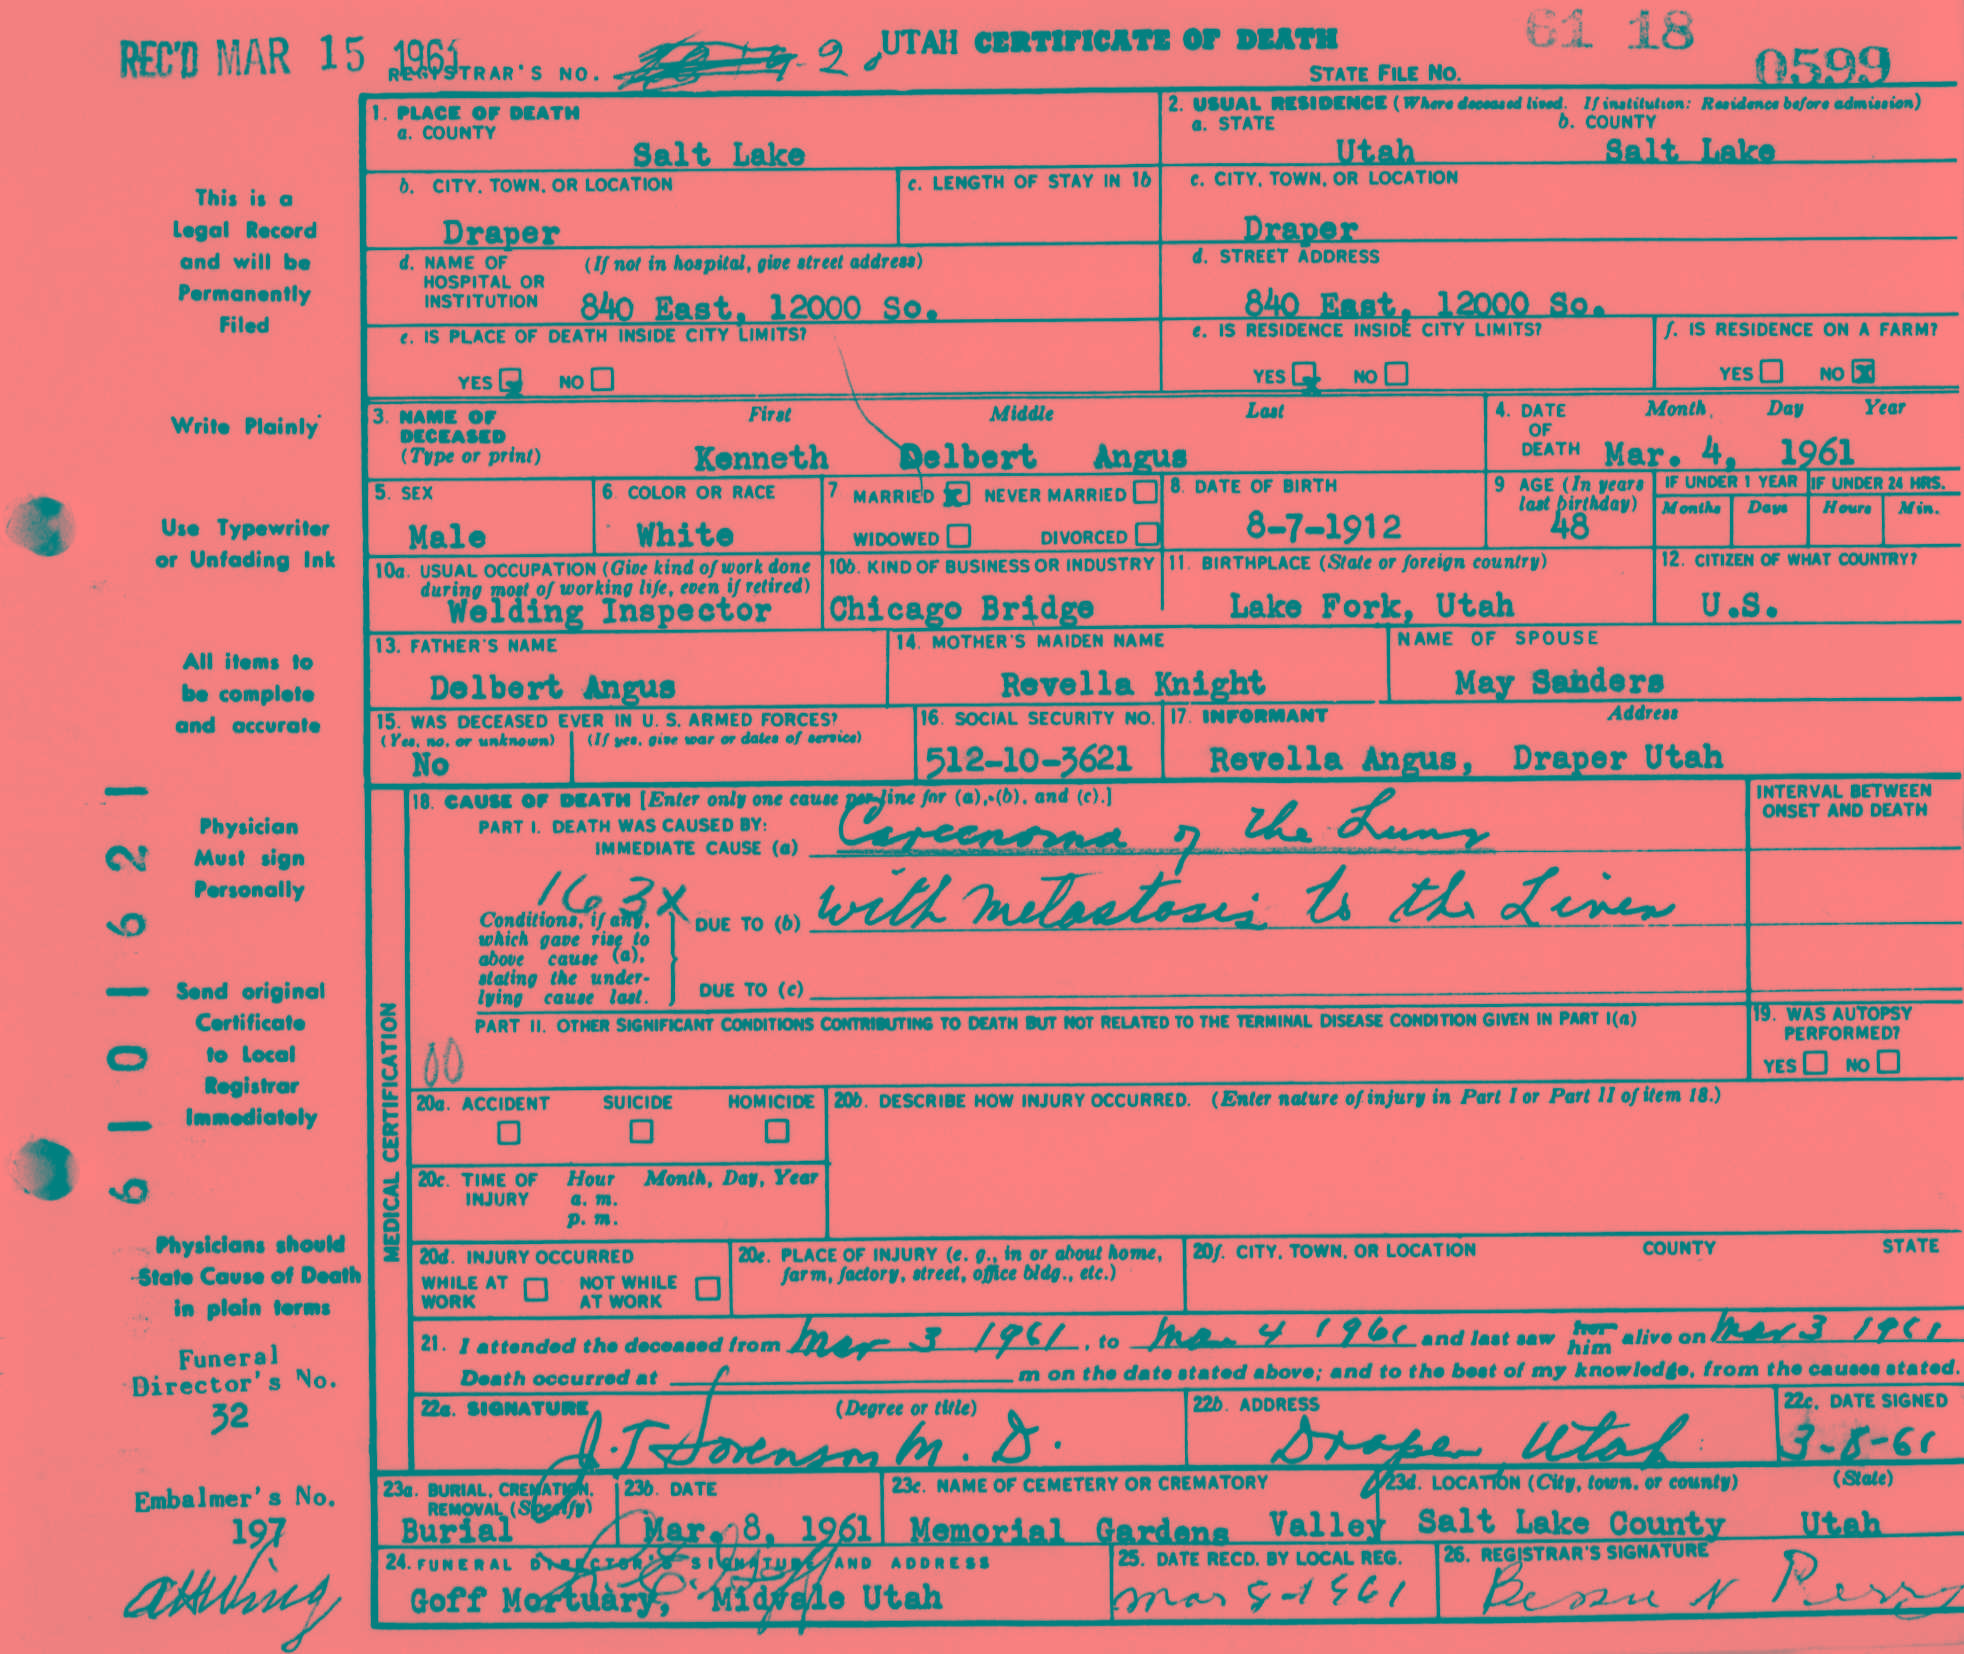 REC'D MAR 15 1961
REGISTRAR'S NO. 2
UTAH CERTIFICATE OF DEATH
61 18
STATE FILE NO. 0599
This is a
Legal Record
and will be
Permanently
Filed
Write Plainly
Use Typewriter
or Unfading Ink
All items to
be complete
and accurate
Physician
Must sign
Personally
Send original
Certificate
to Local
Registrar
Immediately
Physicians should
State Cause of Death
in plain terms
Funeral
Director's No.
32
Embalmer's No.
197
1. PLACE OF DEATH
a. COUNTY
Salt Lake
2. USUAL RESIDENCE (Where deceased lived. If institution: Residence before admission)
a. STATE b. COUNTY
Utah Salt Lake
b. CITY, TOWN, OR LOCATION
Draper
c. LENGTH OF STAY IN 1b
c. CITY, TOWN, OR LOCATION
Draper
d. NAME OF (If not in hospital, give street address)
HOSPITAL OR
INSTITUTION 840 East, 12000 So.
d. STREET ADDRESS
840 East, 12000 So.
e. IS PLACE OF DEATH INSIDE CITY LIMITS?
YES x NO
e. IS RESIDENCE INSIDE CITY LIMITS?
YES x NO
f. IS RESIDENCE ON A FARM?
YES NO x
3. NAME OF First Middle Last
DECEASED
(Type or print) Kenneth Delbert Angus
4. DATE Month Day Year
OF
DEATH Mar. 4, 1961
5. SEX
Male
6. COLOR OR RACE
White
7 MARRIED x NEVER MARRIED
WIDOWED DIVORCED
8. DATE OF BIRTH
8-7-1912
9 AGE (In years
last birthday)
48
IF UNDER 1 YEAR IF UNDER 24 HRS.
Months Days Hours Min.
10a. USUAL OCCUPATION (Give kind of work done
during most of working life, even if retired)
Welding Inspector
10b. KIND OF BUSINESS OR INDUSTRY
Chicago Bridge
11. BIRTHPLACE (State or foreign country)
Lake Fork, Utah
12. CITIZEN OF WHAT COUNTRY?
U.S.
13. FATHER'S NAME
Delbert Angus
14. MOTHER'S MAIDEN NAME
Revella Knight
NAME OF SPOUSE
May Sanders
15. WAS DECEASED EVER IN U. S. ARMED FORCES?
(Yes, no, or unknown) (If yes, give war or dates of service)
No
16. SOCIAL SECURITY NO.
512-10-3621
17. INFORMANT Address
Revella Angus, Draper Utah
6 1 0 1 6 2 1
MEDICAL CERTIFICATION
18. CAUSE OF DEATH [Enter only one cause per line for (a), (b), and (c).]
PART I. DEATH WAS CAUSED BY:
IMMEDIATE CAUSE (a) Carcenoma of the Lung
INTERVAL BETWEEN
ONSET AND DEATH
163X
Conditions, if any,
which gave rise to
above cause (a),
stating the under-
lying cause last.
DUE TO (b) with metastasis to the Liver
DUE TO (c)
PART II. OTHER SIGNIFICANT CONDITIONS CONTRIBUTING TO DEATH BUT NOT RELATED TO THE TERMINAL DISEASE CONDITION GIVEN IN PART I(a)
00
19. WAS AUTOPSY
PERFORMED?
YES NO
20a. ACCIDENT SUICIDE HOMICIDE
20b. DESCRIBE HOW INJURY OCCURRED. (Enter nature of injury in Part I or Part II of item 18.)
20c. TIME OF Hour Month, Day, Year
INJURY a. m.
p. m.
20d. INJURY OCCURRED
WHILE AT NOT WHILE
WORK AT WORK
20e. PLACE OF INJURY (e. g., in or about home,
farm, factory, street, office bldg., etc.)
20f. CITY, TOWN, OR LOCATION COUNTY STATE
21. I attended the deceased from Mar 3 1961, to Mar 4 1961 and last saw her him alive on Mar 3 1961
Death occurred at m on the date stated above; and to the best of my knowledge, from the causes stated.
22a. SIGNATURE (Degree or title)
J. T Sorenson M. D.
22b. ADDRESS
Draper Utah
22c. DATE SIGNED
3-8-61
23a. BURIAL, CREMATION,
REMOVAL (Specify)
Burial
23b. DATE
Mar. 8, 1961
23c. NAME OF CEMETERY OR CREMATORY
Memorial Gardens Valley
23d. LOCATION (City, town, or county) (State)
Salt Lake County Utah
24. FUNERAL DIRECTOR'S SIGNATURE AND ADDRESS
Goff Mortuary, Midvale Utah
25. DATE RECD. BY LOCAL REG.
Mar 8-1961
26. REGISTRAR'S SIGNATURE
Bessie N Perry